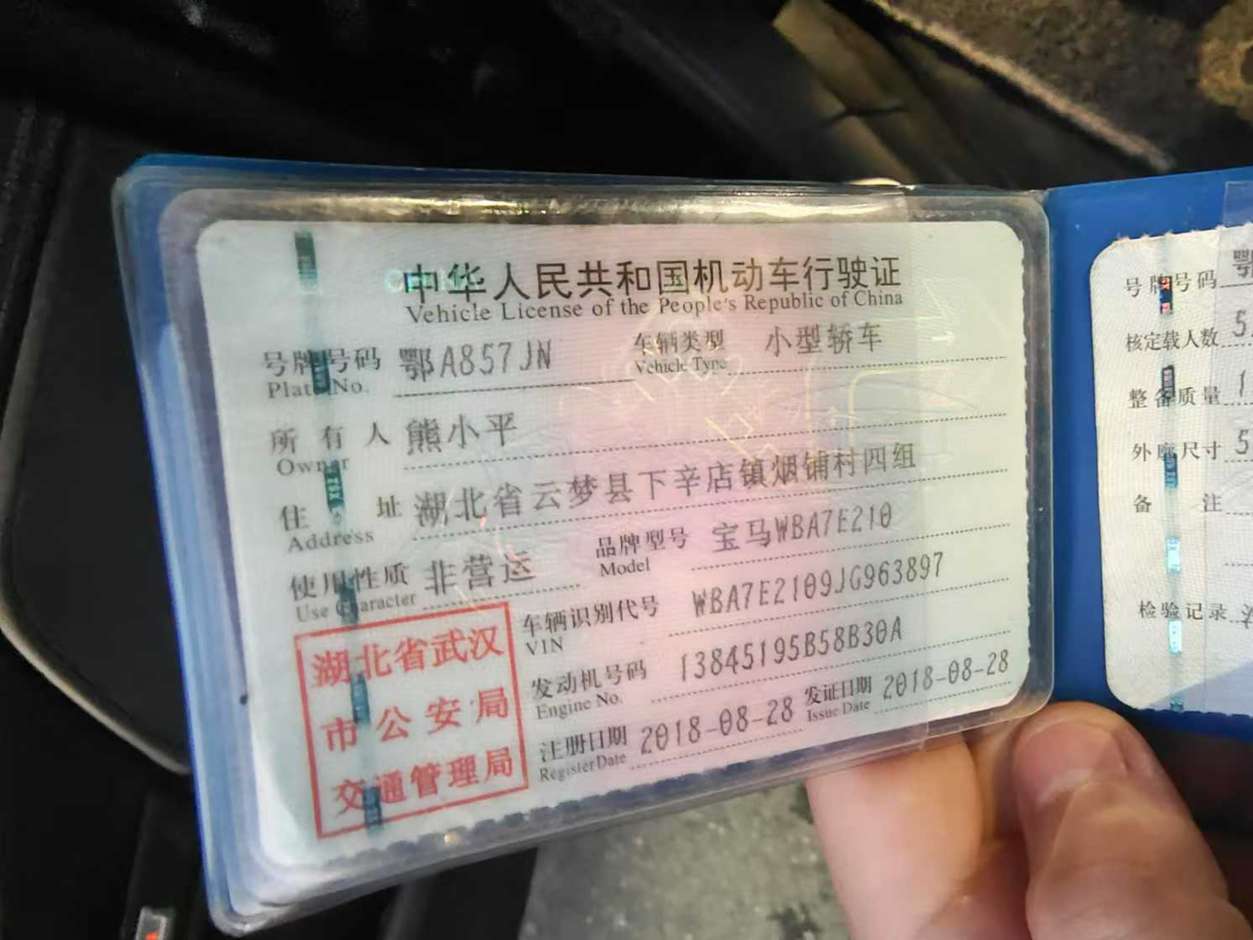 中华人民共和国机动车行驶证
Vehicle License of the People's Republic of China
号牌号码 鄂A857JN 车辆类型 小型轿车
Plate No. Vehicle Type
所有人 熊小平
Owner
住址 湖北省云梦县下辛店镇烟铺村四组
Address
使用性质 非营运 品牌型号 宝马WBA7E210
Use Character Model
车辆识别代号 WBA7E2109JG963897
VIN
发动机号码 13845195B58B30A
Engine No.
注册日期 2018-08-28 发证日期 2018-08-28
Register Date Issue Date
湖北省武汉
市公安局
交通管理局
号牌号码 鄂
核定载人数 5
整备质量 1
外廓尺寸 5
备注
检验记录